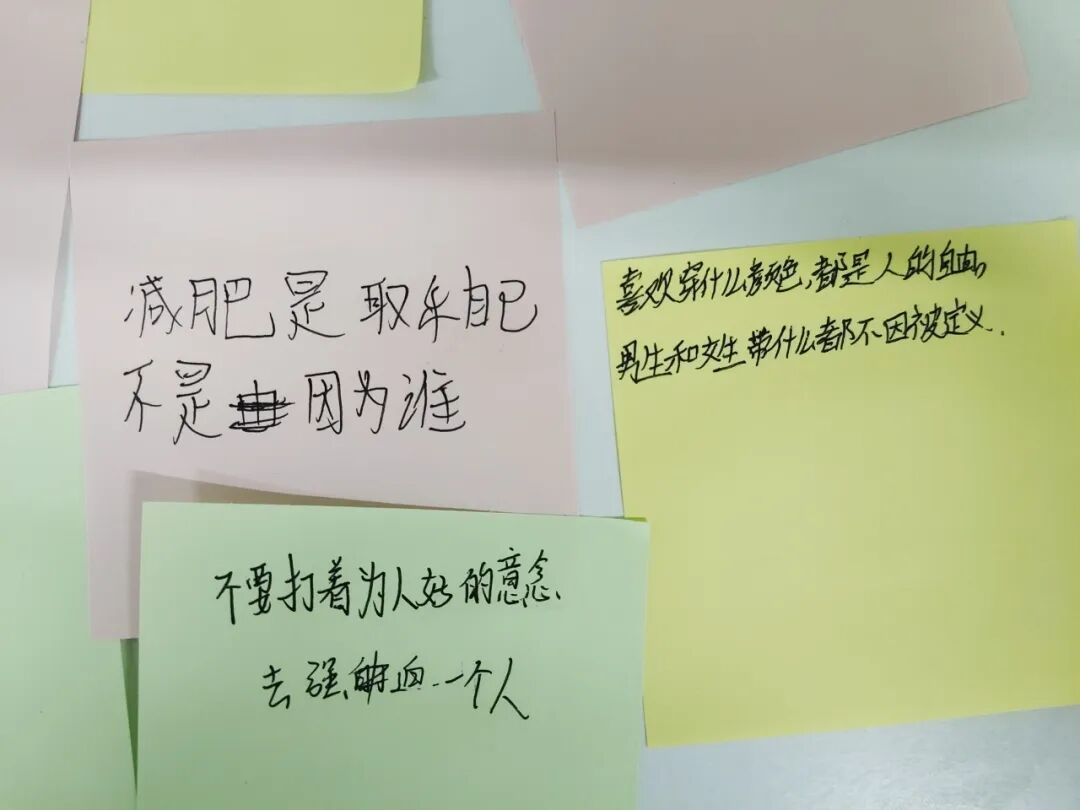 减肥是取乐自己
不是因为谁
喜欢穿什么颜色,都是人的自由。
男生和女生带什么都不因被定义.
不要打着为人好的意念、
去强迫一个人